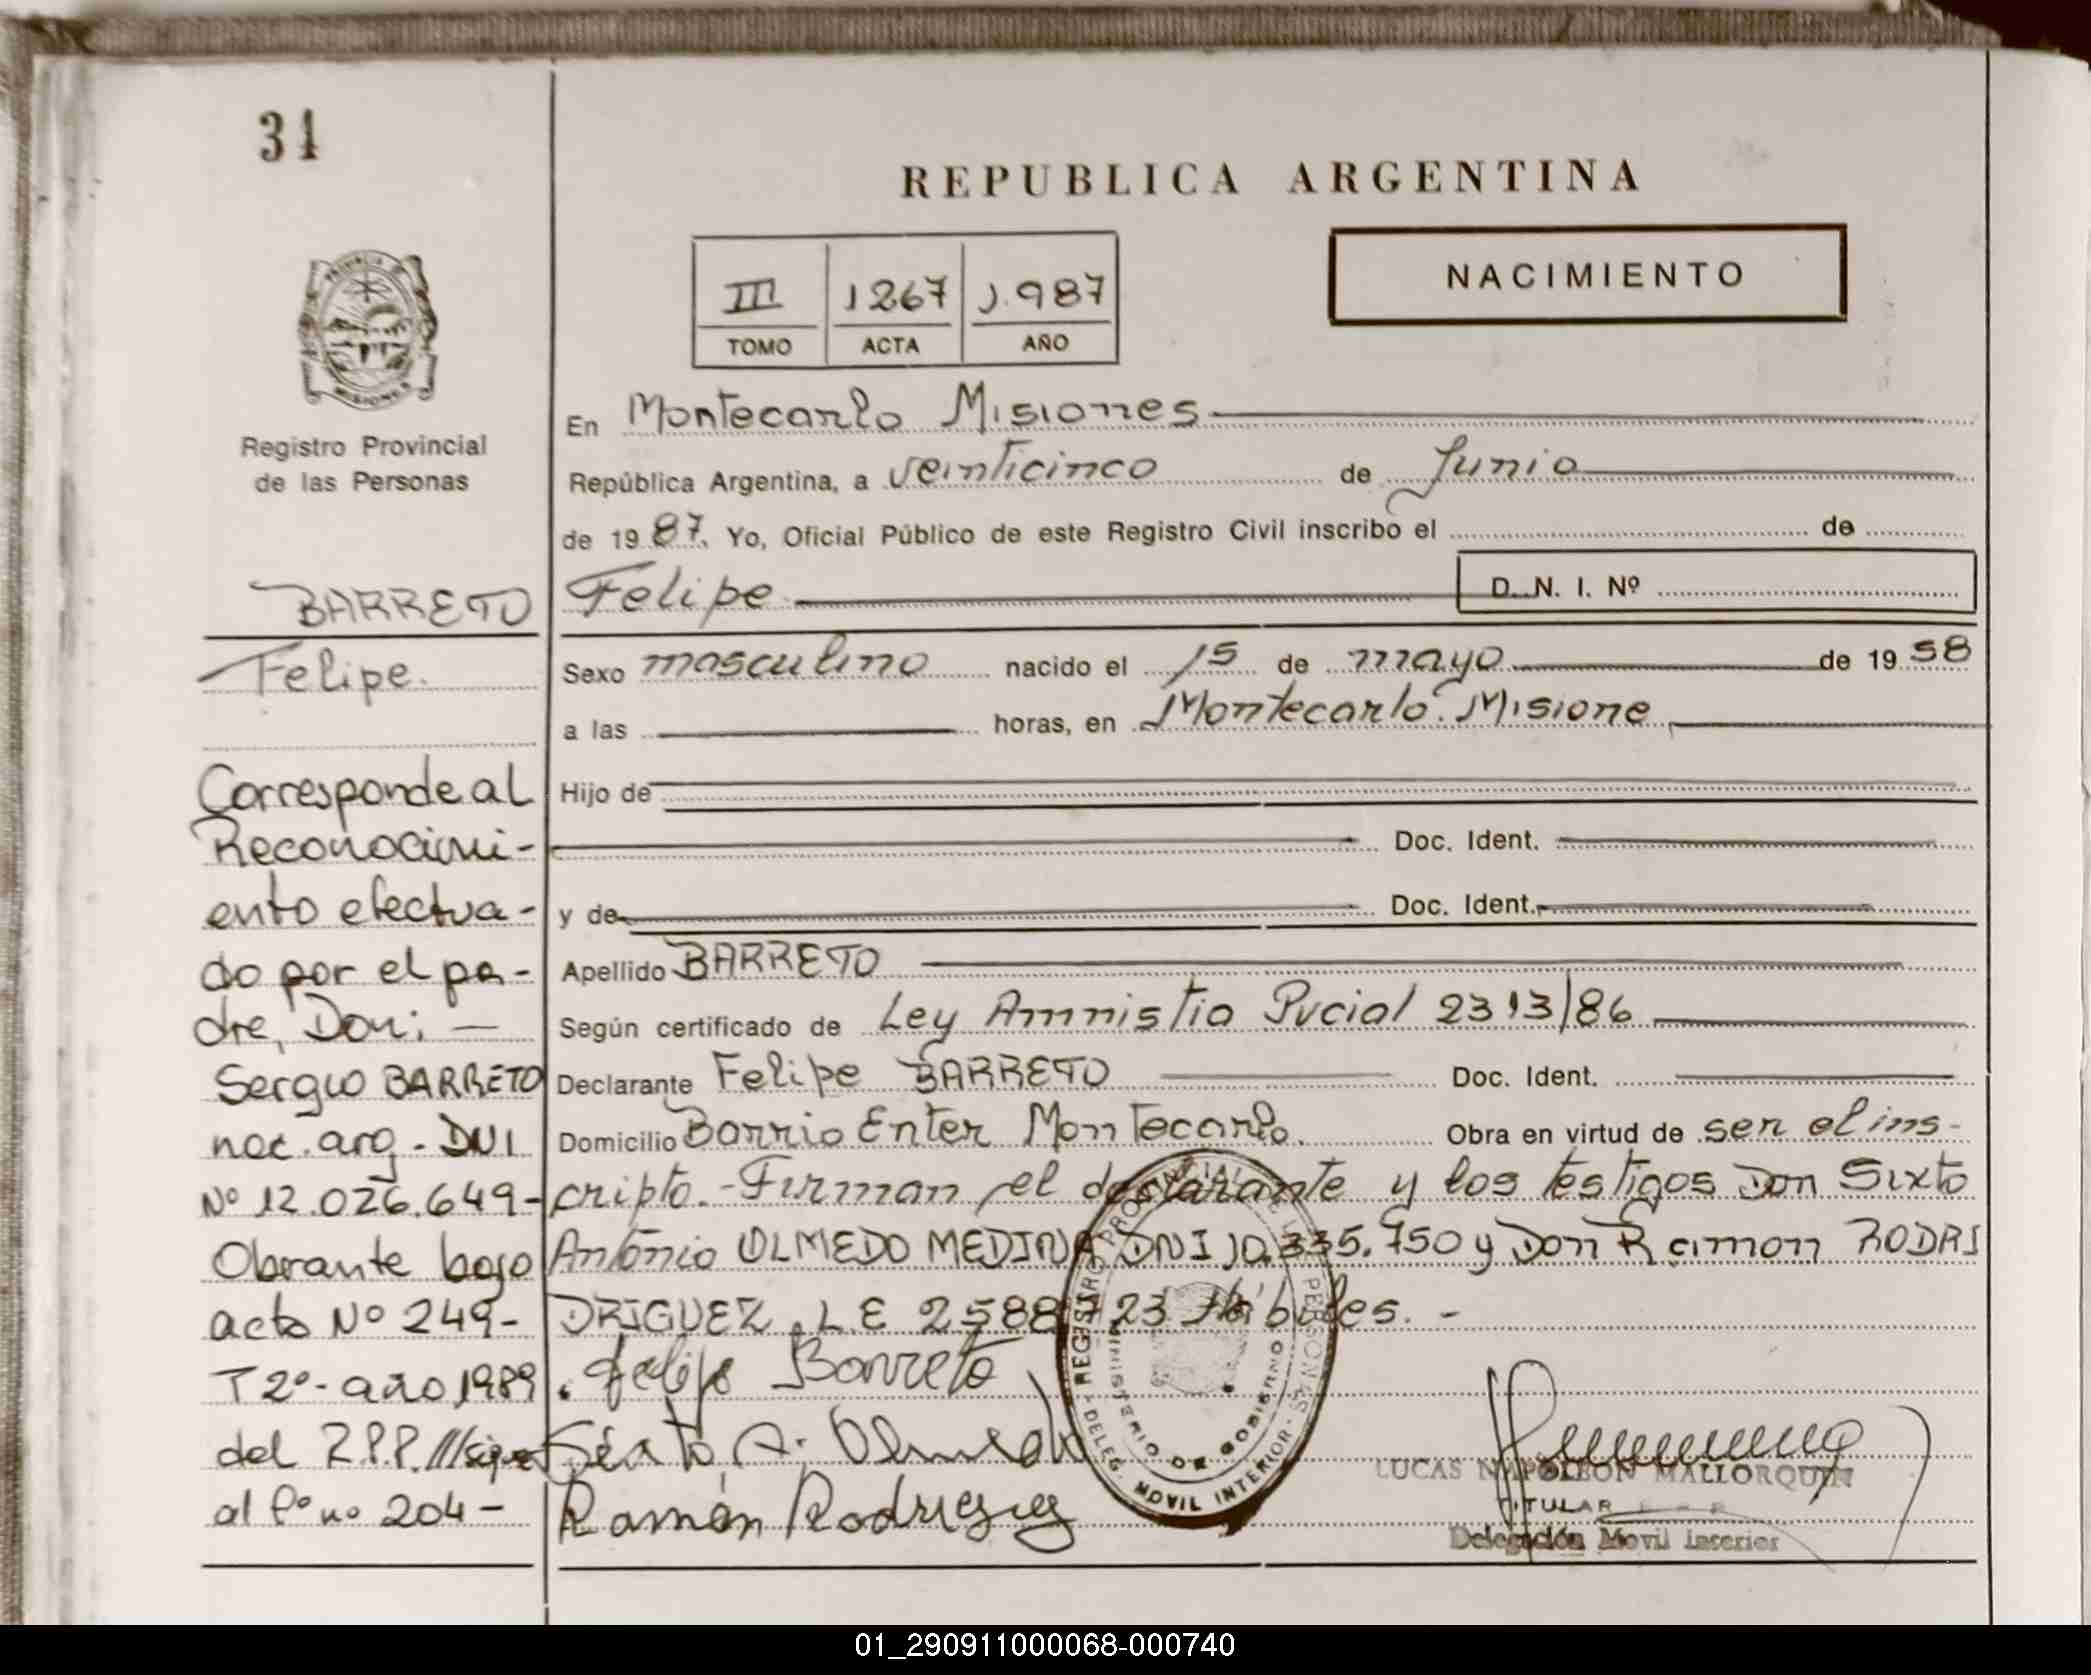 31
REPUBLICA ARGENTINA
III 1267 1.987
TOMO ACTA AÑO
NACIMIENTO
PROVINCIA DE MISIONES
Registro Provincial
de las Personas
BARRETO
Felipe.
Corresponde al
Reconocimi-
ento efectua-
do por el pa-
dre, Don; —
Sergio BARRETO
nac. arg. - DNI
Nº 12.026.649-
Obrante bajo
acta Nº 249-
T 2º- año 1989
del R.P.P. ///sigue
al fº nº 204 -
En Montecarlo Misiones
República Argentina, a veinticinco de Junio
de 19 87. Yo, Oficial Público de este Registro Civil inscribo el de
Felipe D. N. I. Nº
Sexo masculino nacido el 15 de mayo de 19 58
a las horas, en Montecarlo. Misione
Hijo de
Doc. Ident.
y de Doc. Ident.
Apellido BARRETO
Según certificado de Ley Amnistia Pvcial 2313/86
Declarante Felipe BARRETO Doc. Ident.
Domicilio Barrio Enter Montecarlo. Obra en virtud de ser el ins-
cripto.- Firman el declarante y los testigos Don Sixto
Antonio OLMEDO MEDINA DNI 10.335.750 y Don Ramon RODRI
DRIGUEZ, L.E 2588723 Hábiles. -
Felipe Barreto
Sixto A. Olmedo
Ramón Rodriguez
REGISTRO PROVINCIAL DE LAS PERSONAS
DELEG. MOVIL INTERIOR
MINISTERIO DE GOBIERNO
LUCAS NAPOLEON MALLORQUIN
TITULAR
Delegación Movil Interior
01_290911000068-000740